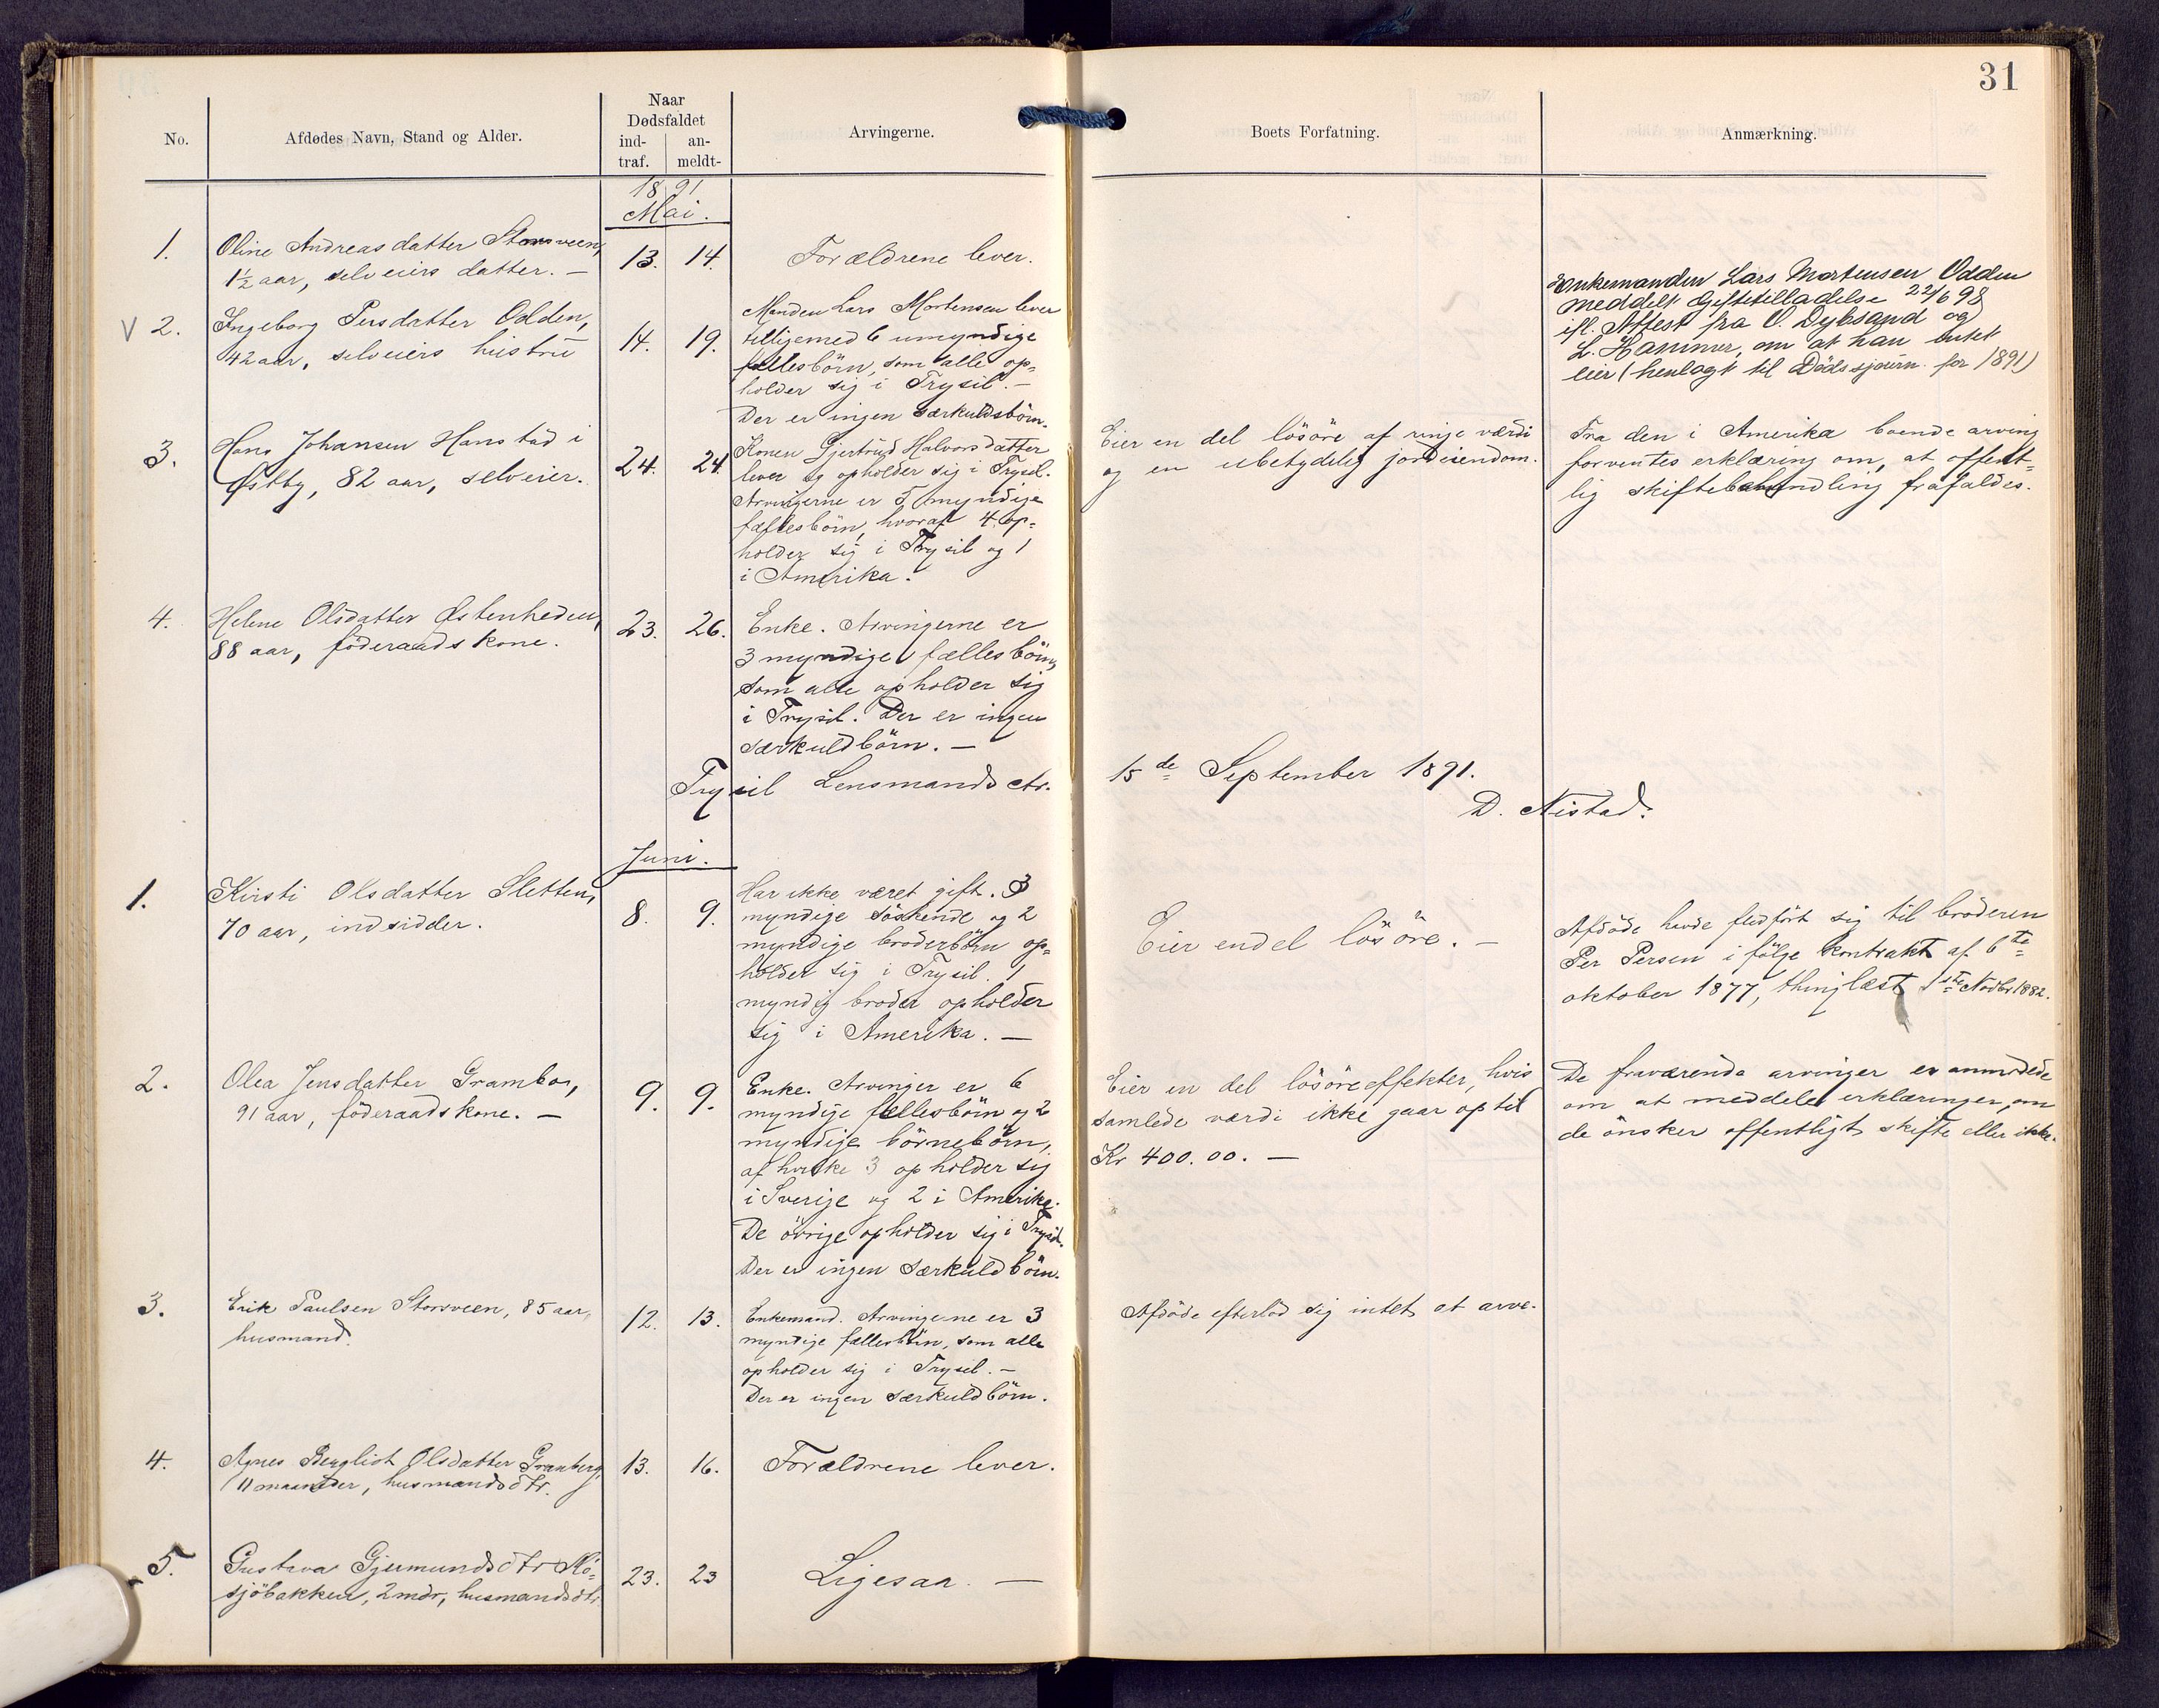 31
No.
Afdødes Navn, Stand og Alder.
Naar
Dødsfaldet
ind-
traf.
an-
meldt-
Arvingerne.
Boets Forfatning.
Anmærkning.
1891
Mai.
1.
Oline Andreasdatter Storsveen,
1½ aar, selveiers datter. —
13.
14.
Forældrene lever.
V 2.
Ingeborg Persdatter Odden,
42 aar, selveiers hustru
14.
19.
Manden Lars Mortensen lever
tilligemed 6 umyndige
fællesbörn, som alle op=
holder sig i Trysil. —
Der er ingen særkuldsbörn.
Enkemanden Lars Mortensen Odden
meddelt Giftetilladelse 22/6 98
ifl. Attest fra O. Dybsand og
L. Hammer, om at han intet
eier (henlagt til Dödsjourn. for 1891)
3.
Hans Johansen Hanstad i
Østby, 82 aar, selveier.
24.
24
Konen Gjertrud Halvorsdatter
lever og opholder sig i Trysil.
Arvingerne er 5 myndige
fællesbörn, hvoraf 4 op=
holder sig i Trysil og 1
i Amerika.
Eier en del lösöre af ringe værdi
og en ubetydelig jordeiendom.
Fra den i Amerika boende arving
forventes erklæring om, at offent=
lig skiftebehandling frafaldes.
4.
Helene Olsdatter Østenheden,
88 aar, föderaadskone.
23.
26.
Enke. Arvingerne er
3 myndige fællesbörn,
som alle opholder sig
i Trysil. Der er ingen
særkuldbörn. —
Trysil Lensmandsctr.
15de September 1891.
D. Nistad.
Juni.
1.
Kirsti Olsdatter Sletten,
70 aar, indsidder.
8.
9.
Har ikke været gift. 3
myndige söskende og 2
myndige broderbörn op=
holder sig i Trysil. 1
myndig broder opholder
sig i Amerika. —
Eier endel lösöre. —
Afdöde havde fledfört sig til broderen
Per Persen i fölge kontrakt af 6te
oktober 1877, thinglæst 1ste Novbr 1882.
2.
Olea Jensdatter Grambo,
91 aar, föderaadskone. —
9.
9.
Enke. Arvinger er 6
myndige fællesbörn og 2
myndige börnebörn,
af hvilke 3 opholder sig
i Sverige og 2 i Amerika.
De övrige opholder sig i Trysil.
Der er ingen særkuldbörn.
Eier en del lösöreeffekter, hvis
samlede værdi ikke gaar op til
Kr 400.00. —
De fraværende arvinger er anmodede
om at meddele erklæringer, om
de önsker offentligt skifte eller ikke.
3.
Erik Paulsen Storsveen, 85 aar,
husmand.
12.
13.
Enkemand. Arvingerne er 3
myndige fællesbörn, som alle
opholder sig i Trysil. —
Der er ingen særkuldbörn.
Afdöde efterlod sig intet at arve.
4.
Agnes Bergliot Olsdatter Granberg,
11 maaneder, husmandsdtr.
13.
16.
Forældrene lever.
5.
Gustava Gjermundsdtr Kö=
sjöbakken, 2 mdr, husmandsdtr.
23.
23
Ligesaa. —